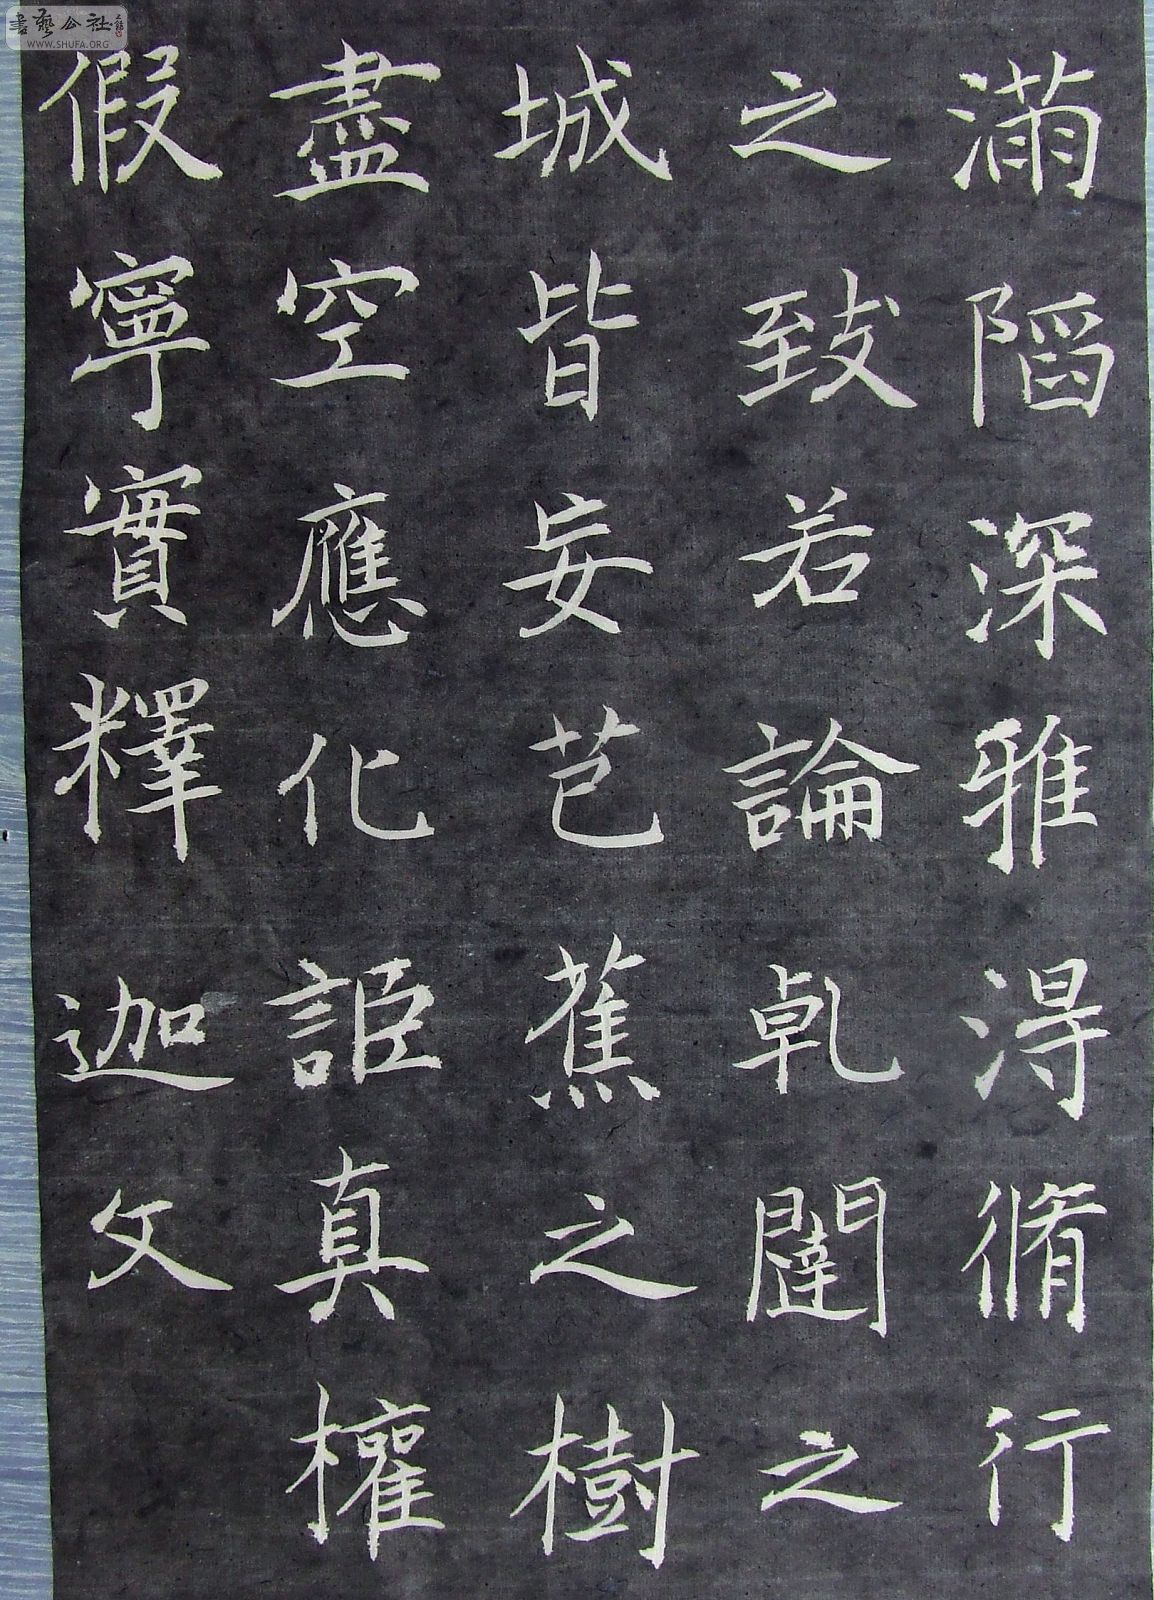 滿陷深雅淂脩行
之致若論乹闥之
城皆妄芭蕉之樹
盡空應化詎真權
假寧實釋迦文
書藝公社
WWW.SHUFA.ORG